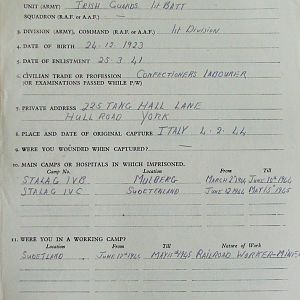 UNIT (ARMY) Irish Guards 1st Batt
SQUADRON (R.A.F. or A.A.F.)
3. DIVISION (ARMY), COMMAND (R.A.F. or A.A.F.) 1st Division
4. DATE OF BIRTH 24-12 1923
5. DATE OF ENLISTMENT 25 3 41
6. CIVILIAN TRADE OR PROFESSION Confectioners Labourer
(OR EXAMINATIONS PASSED WHILE P/W)
7. PRIVATE ADDRESS 225 TANG HALL LANE
HULL ROAD YORK
8. PLACE AND DATE OF ORIGINAL CAPTURE ITALY 4.2.44
9. WERE YOU WOUNDED WHEN CAPTURED?
10. MAIN CAMPS OR HOSPITALS IN WHICH IMPRISONED.
Camp No. Location From Till
STALAG IVB MULBERG MARCH 2nd 1944 JUNE 10th 1944
STALAG IVC SUDETENLAND JUNE 12 1944 MAY 15 1945
11. WERE YOU IN A WORKING CAMP?
Location From Till Nature of Work
SUDETLAND JUNE 1944 MAY 1945 RAILROAD WORKER-MINER